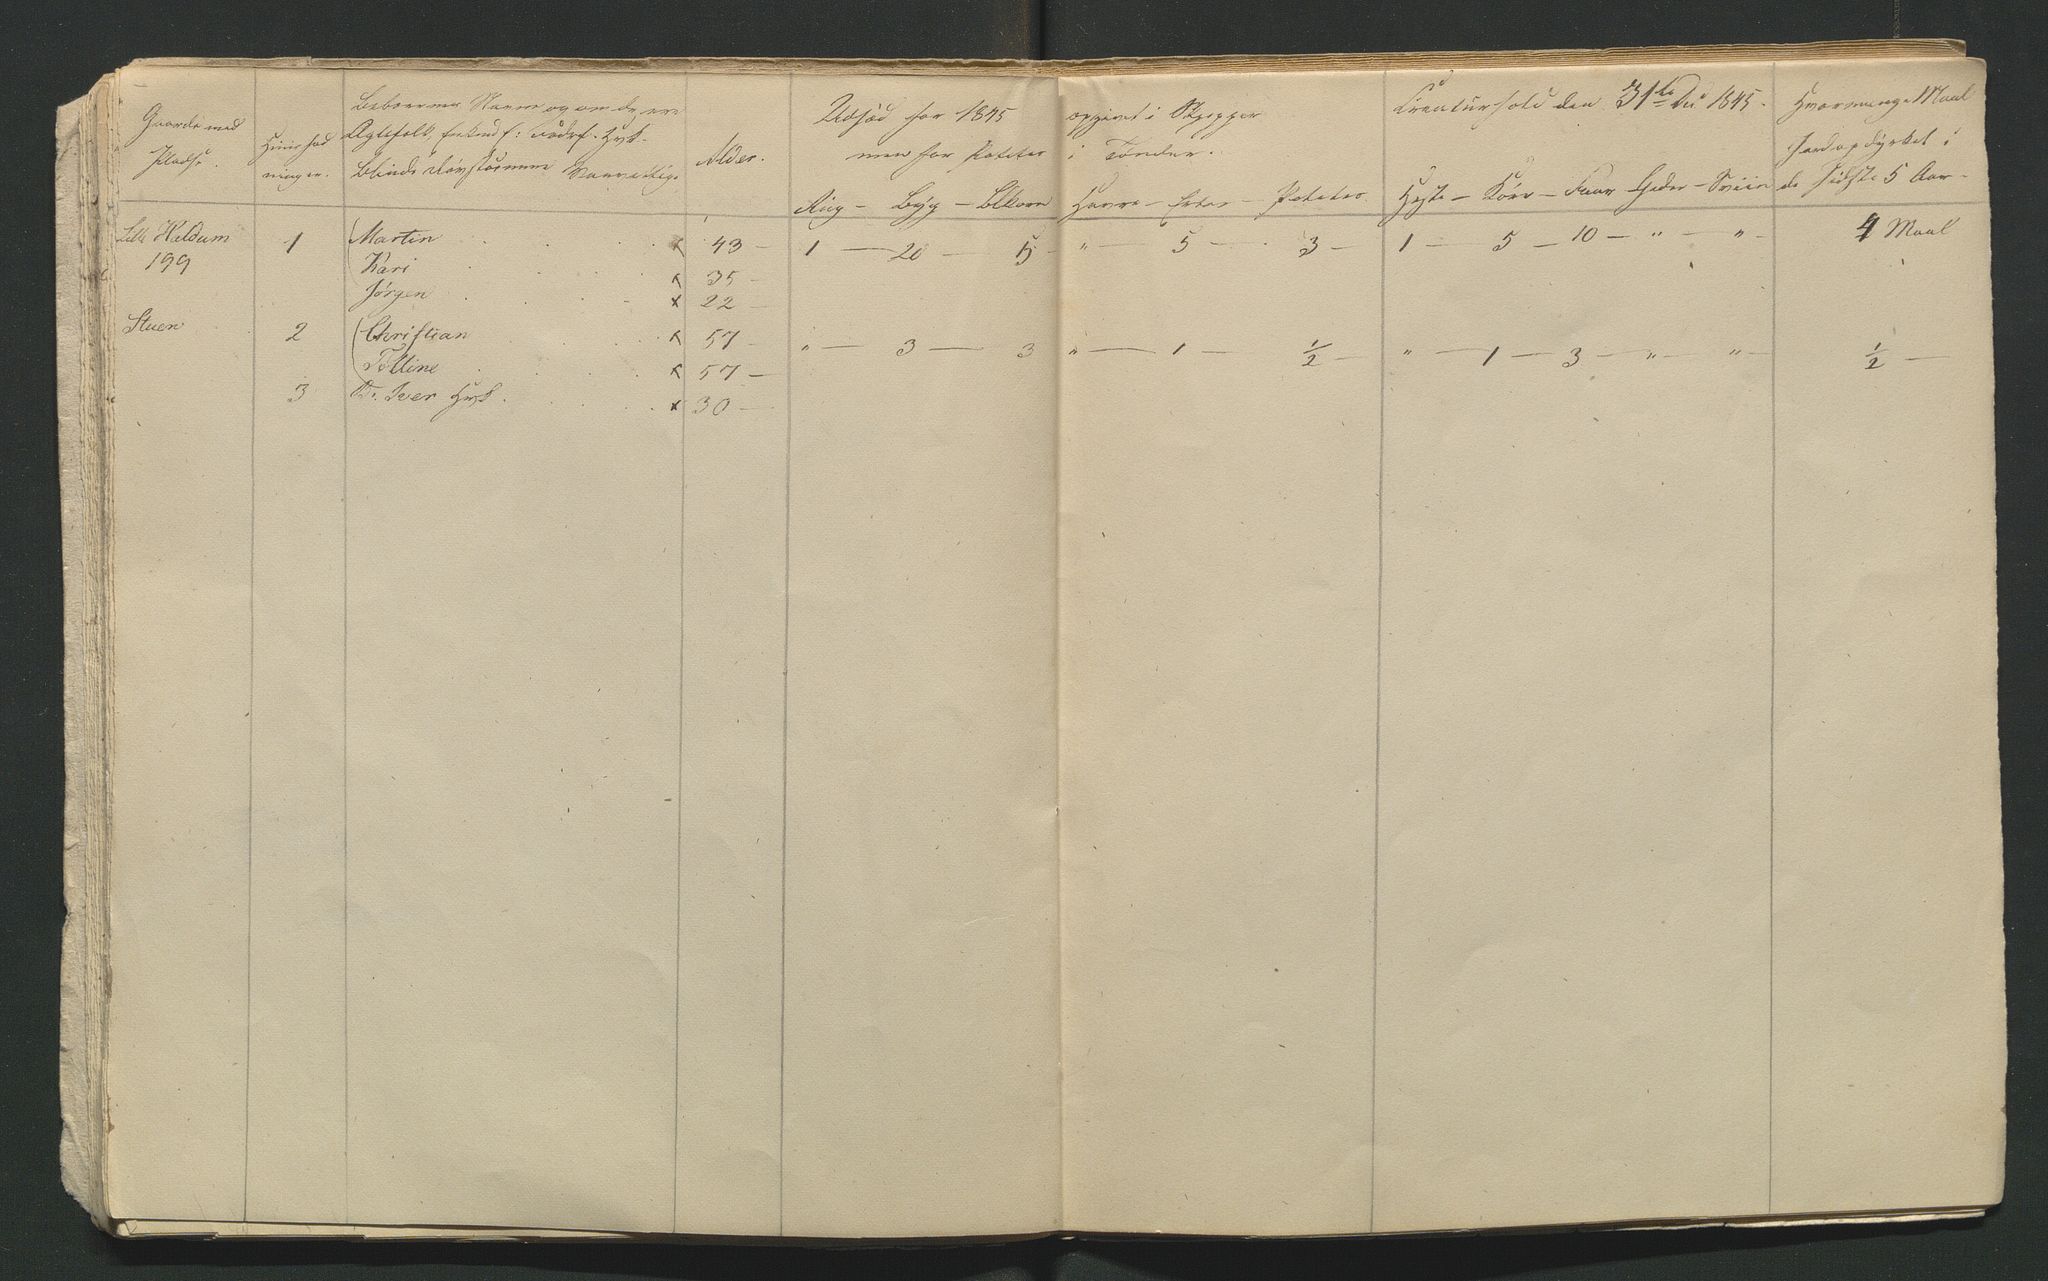 Gaarde med
Pladse.
Huushol
ninger.
Beboernes Navne og om de ere
Ægtefolk, Enkemd
Blinde Døvstumme Vanvittige
Alder.
Udsæd for 1845
men for Poteter
Rug – Byg – Blkorn
opgivet i Skjepper
i Tønder.
Havre – Erter – Poteter
Creaturhold den 31te Dec 1845.
Heste – Kör – Faar Geder – Sviin
Hvormange Maal
Jord opdyrket i
de sidste 5 Aar –
Lille Heldum 1 Martin x 43 – 1 – 20 – 15 – " – 5 – 3 – 1 – 5 – 10 – " – " – 4 Maal
199 Kari x 35 –
Jörgen x 22 –
Stuen 2 Christian x 57 – " – 3 – 3 " – 1 – ½ – " – 1 – 3 – " – " – ½ –
x 57 –
3 Iver Husf. x 30 –